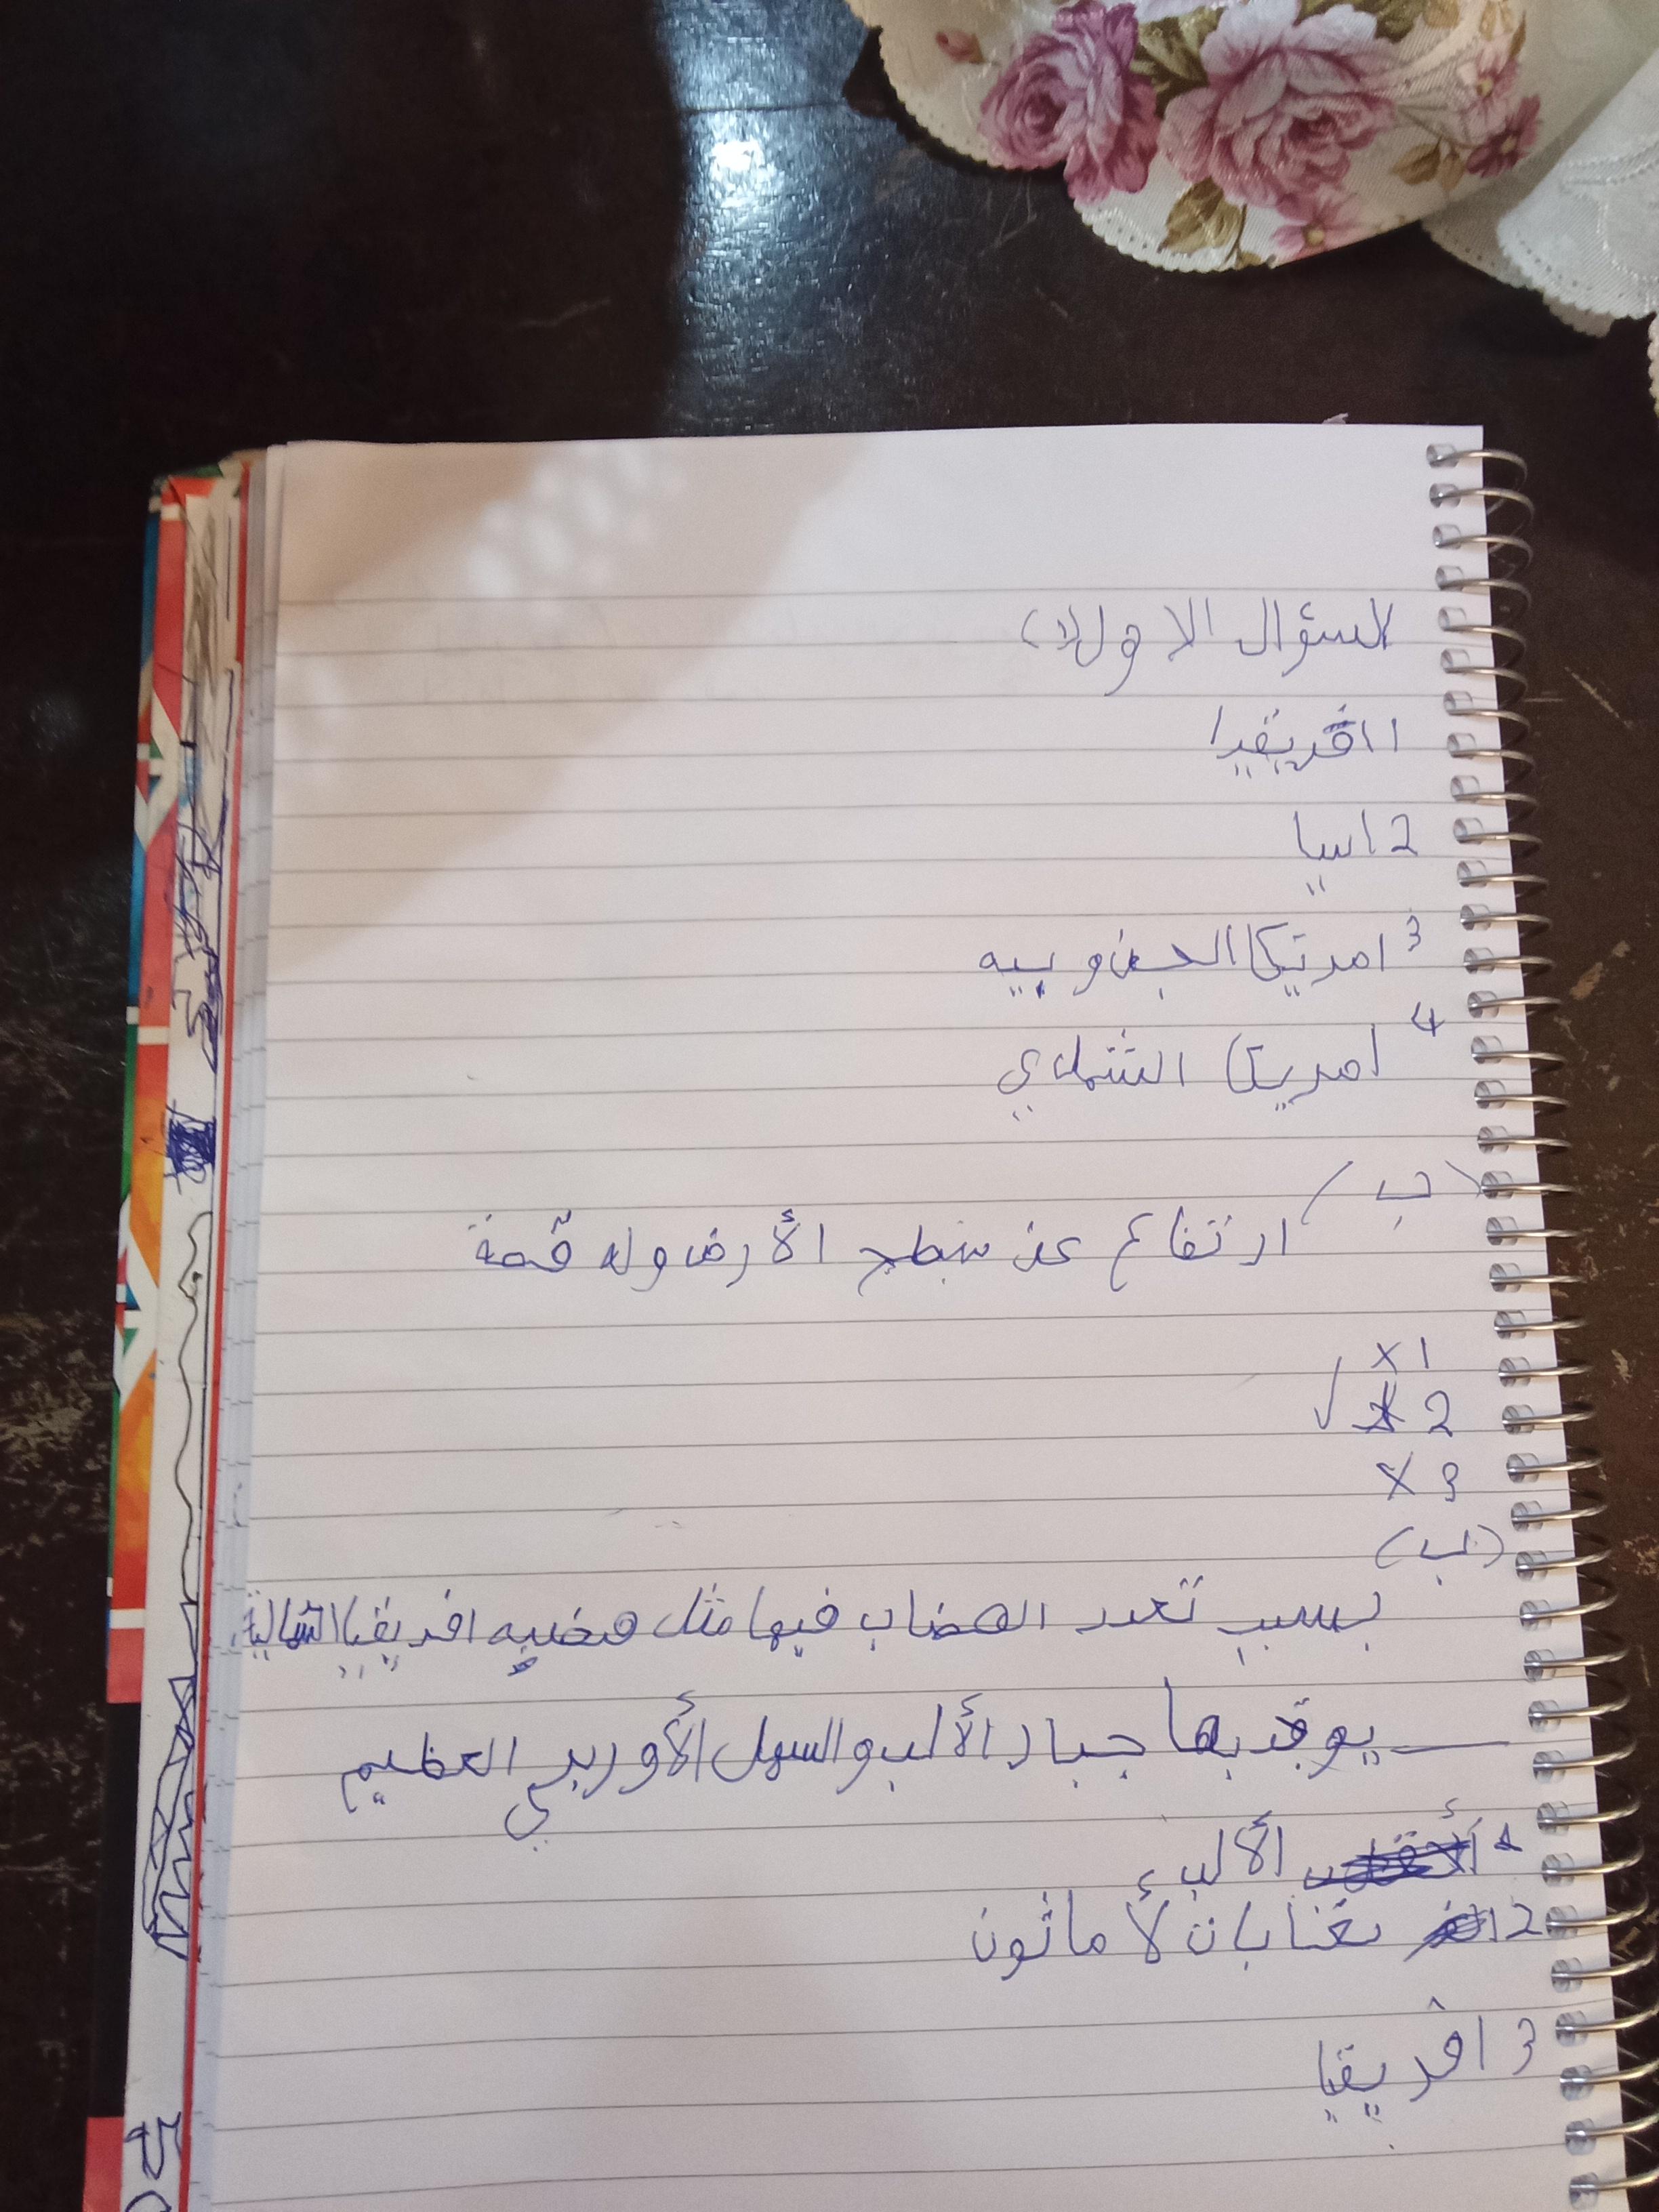 السؤال الاول (1)
1 افريقيا
2 اسيا
3 امريكا الجنوبيه
4 امريكا الشمالي
(ب)
ارتفاع عن سطح الأرض وله قمة
1 X
2 ✓
3 X
(ب)
بسبب تعدد الهضاب فيها مثل هضبيه افريقيا الشمالية
يوجد بها جبال الألب والسهل الأوربي العظيم
1 الألب
2 بغنابات لأماثون
3 افريقيا